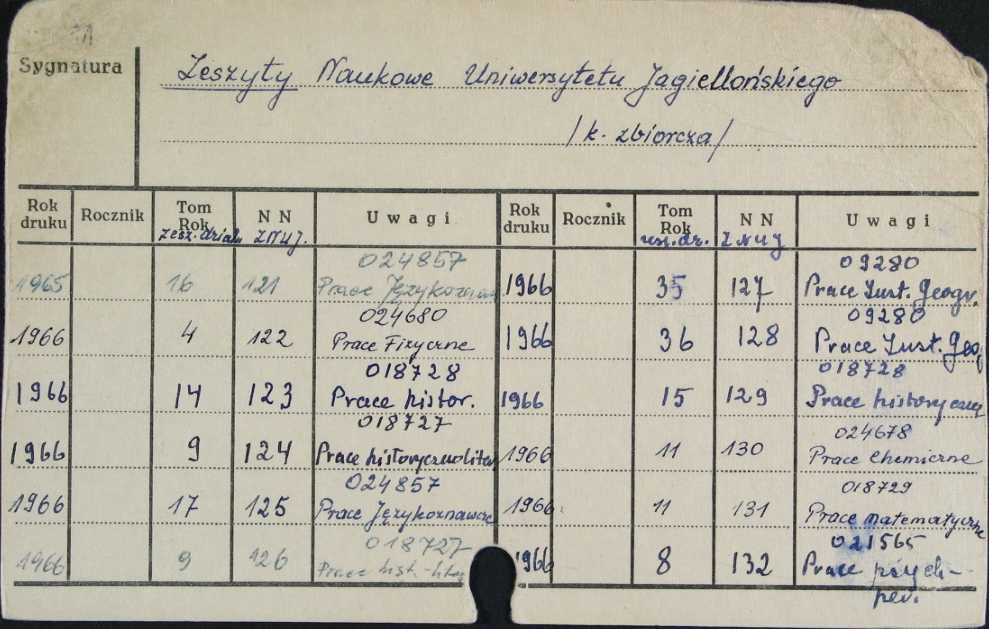 Sygnatura
Zeszyty Naukowe Uniwersytetu Jagiellońskiego
/k. zbiorcza/
Rok druku Rocznik Tom Rok N N Uwagi Rok druku Rocznik Tom Rok N N Uwagi
zesz. działu ZNUJ. dz. ZNUJ
024857 09280
1965 16 121 Prace Językoznaw 1966 35 127 Prace Inst. Geogr.
024680 09280
1966 4 122 Prace Fizyczne 1966 36 128 Prace Inst. Geog
018728 018728
1966 14 123 Prace histor. 1966 15 129 Prace historyczny
018727 024678
1966 9 124 Prace historycznoliter 1966 11 130 Prace Chemiczne
024857 018729
1966 17 125 Prace Językoznawcze 1966 11 131 Prace matematyczne
018727 021565
1966 9 126 Prace hist.-lit 1966 8 132 Prace psych-